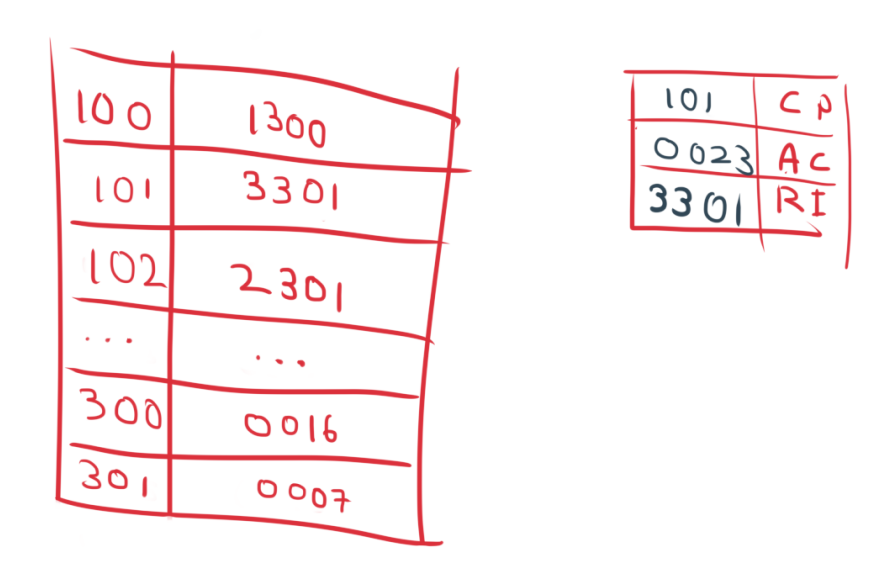 100 1300
101 3301
102 2301
... ...
300 0016
301 0007
101 CP
0023 AC
3301 RI